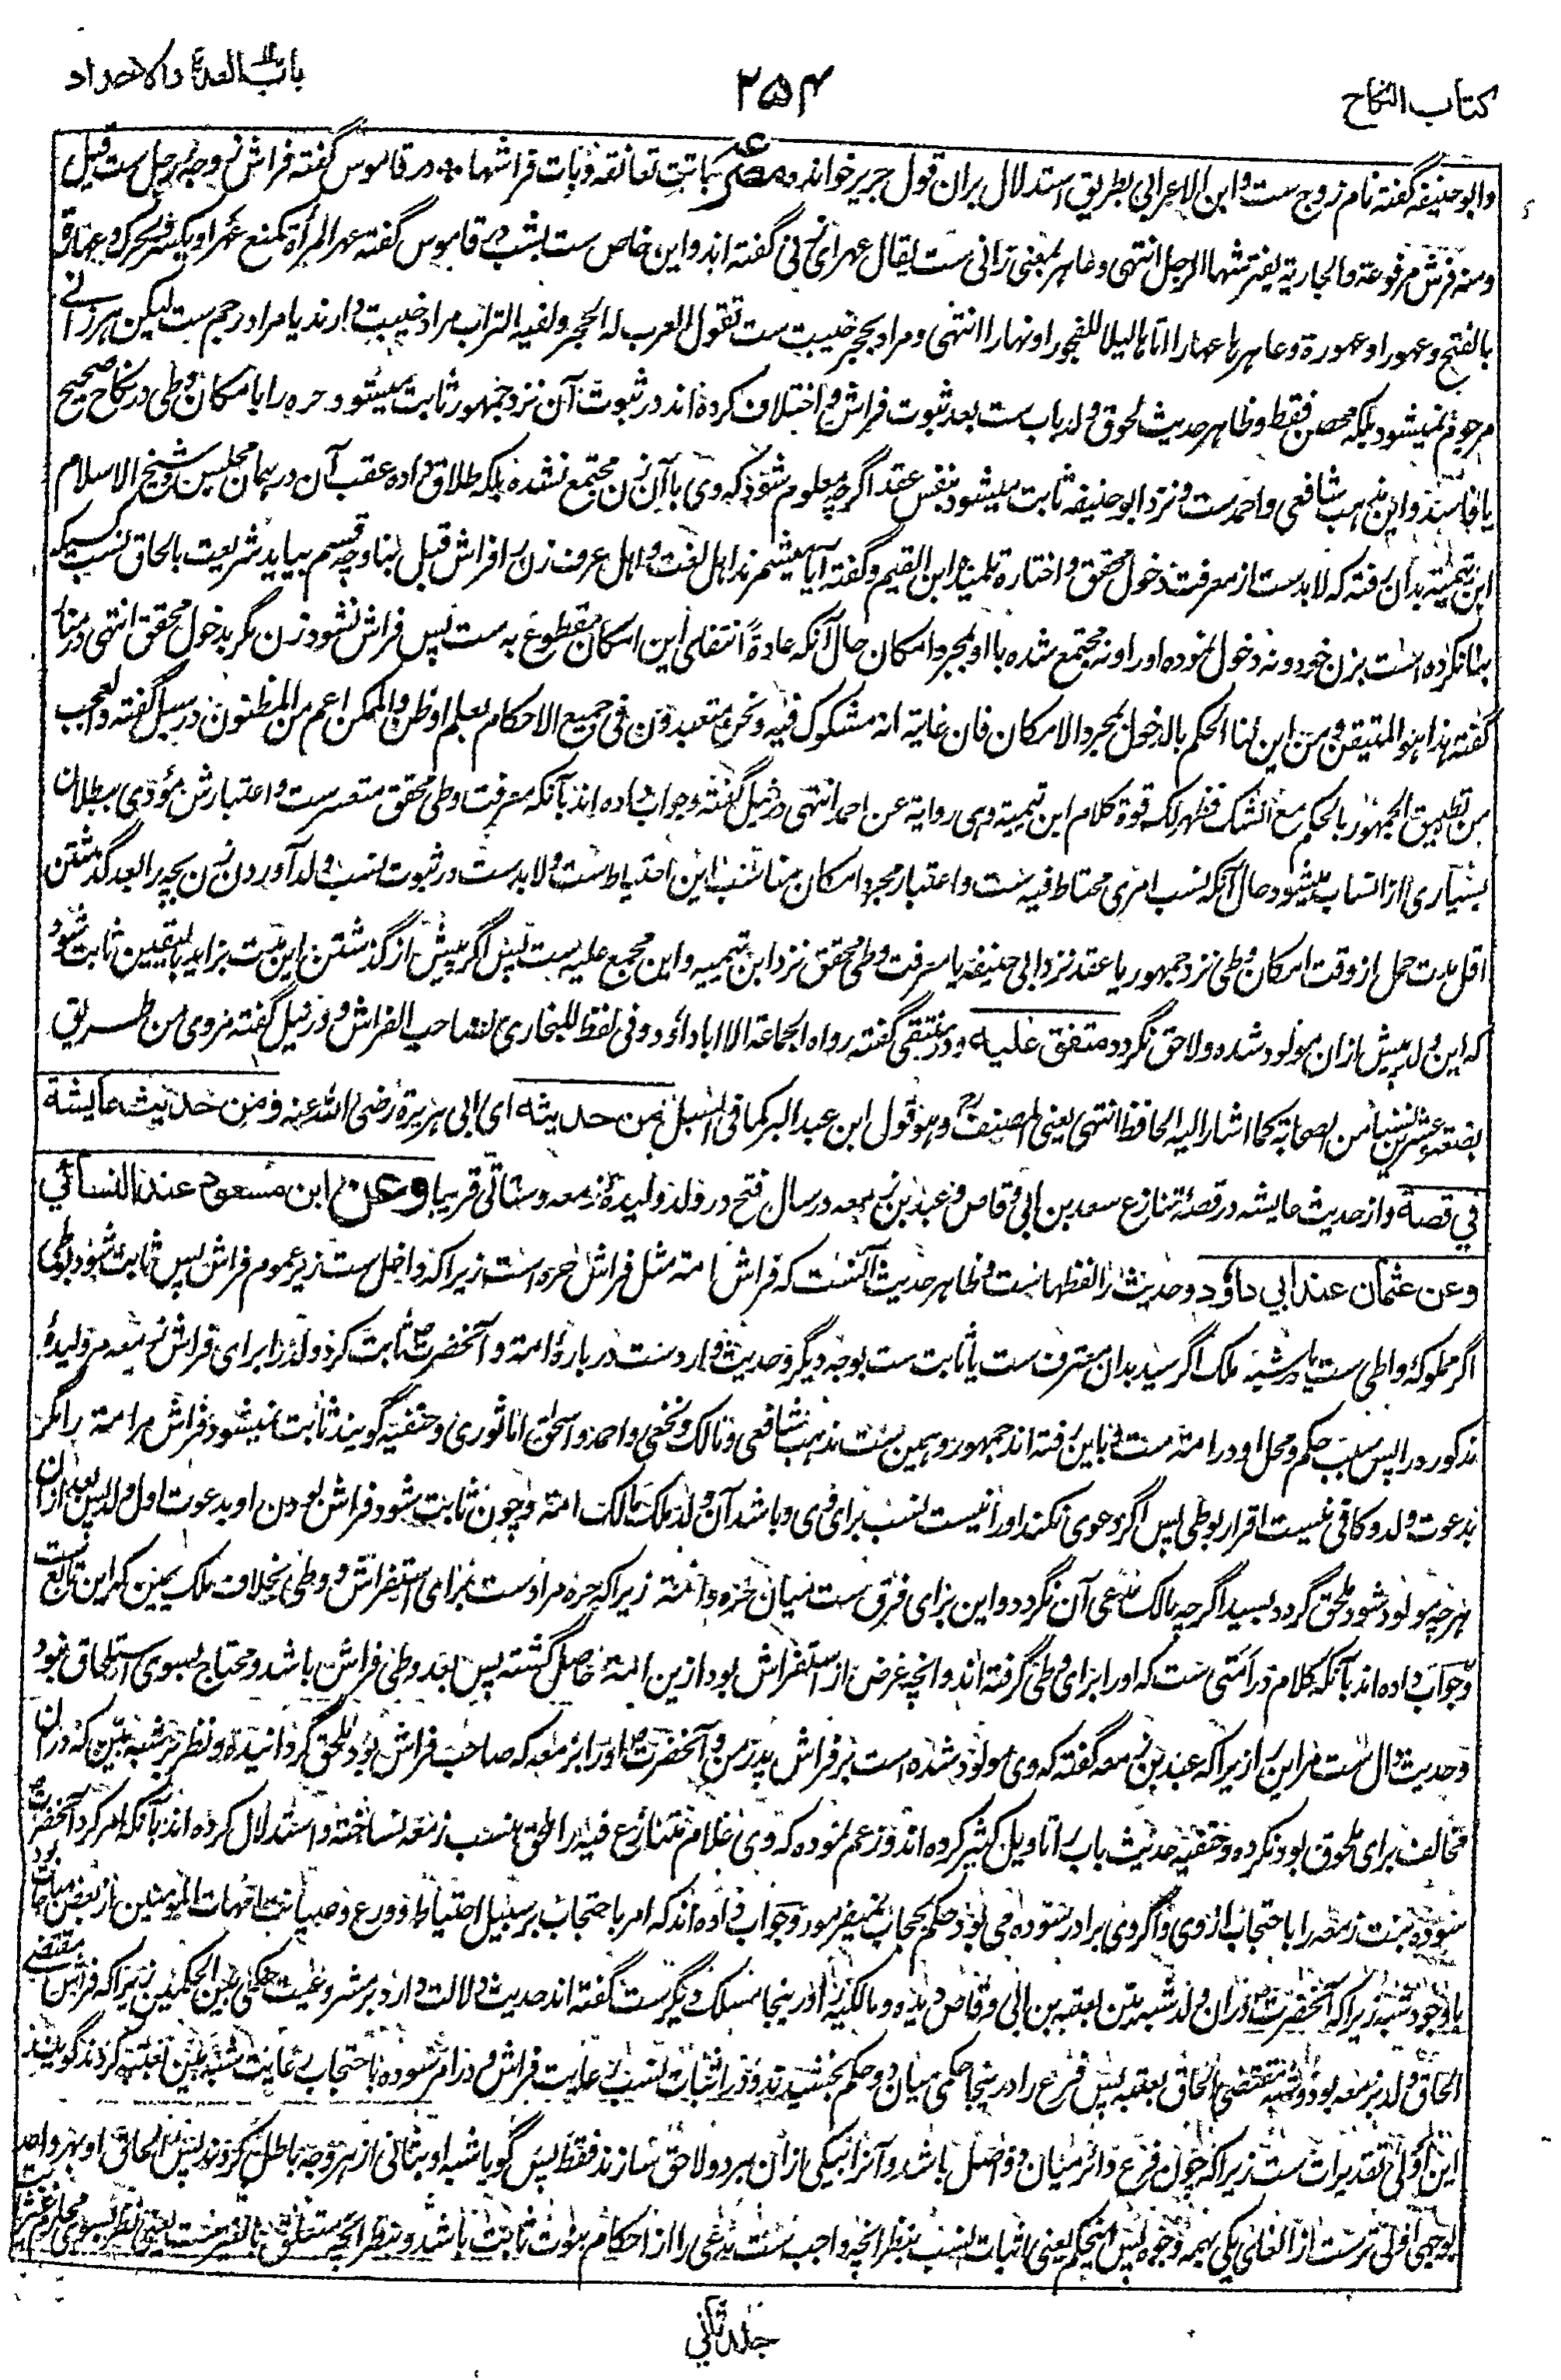 كتاب النكاح
۲۵۴
باب العدة والاحداد
وابو حنیفه گفته نام زوج ست و ابن الاعرابی بطریق استدلال بران قول جریر خوانده و مصرع باتت تعانقه و بات فراشها ٭ در قاموس گفته فراش زوجهٔ رجل ست قیل
ومنه فرش مرفوعة والجارية يفترشها الرجل انتهی و عاهر بمعنی زانی ست یقال عهر ای زنی گفته اند و این خاص ست بشب در قاموس گفته عهر المرأة کمنع عهرا و یکسر و یحرک و عهارة
بالفتح وعهورا وعهورة وعاهرها عهارا اتاها ليلا للفجور او نهارا انتهی و مراد بحجر خیبت ست تقول العرب له الحجر و بفیه التراب مراد خیبت دارند یا مراد رجم ست لیکن هر زانی
مرجوم نمیشود بلکه محصن فقط و ظاهر حدیث لحوق ولد باب ست بعد ثبوت فراش و اختلاف کرده اند در ثبوت آن نزد جمهور ثابت میشود و حره را بامکان وطی در نکاح صحیح
یا فاسد و این مذهب شافعی و احمد ست و نزد ابو حنیفه ثابت میشود بنفس عقد اگرچه معلوم شود که وی با آن زن مجتمع نشده بلکه طلاق داده عقب آن در همان مجلس و شیخ الاسلام
ابن تیمیه بدان رفته که لابد ست از معرفت دخول محقق و اختاره تلمیذه ابن القیم و گفته آیا میشمرند اهل لغت و اهل عرف زن را فراش قبل بنا و چه قسم بیاید شریعت بالحاق نسب کسیکه
بنا نکرده است بزن خود و نه دخول نموده او را و نه مجتمع شده با او بمجرد امکان حال آنکه عادةً انتفای این امکان مقطوع به ست پس فراش نشود زن مگر بدخول محقق انتهی در منار
گفته هذا هو المتيقن ومن اين لنا الحكم بالدخول بمجرد الامكان فان غايته انه مشكوك فيه ونحن متعبدون فى جميع الاحكام بعلم او ظن والممكن اعم من المظنون در سبل گفته والعجب
من تطبيق الجمهور بالحكم مع الشك فظهر لك قوة كلام ابن تيمية وهی رواية عن احمد انتهی در نیل گفته و جواب داده اند بآنکه معرفت وطی محقق متعسر ست و اعتبارش مؤدی ببطلان
بسیاری از انساب میشود حال آنکه نسب امری محتاط فیه ست و اعتبار مجرد امکان مناسب این احتیاط ست و لابد ست در ثبوت نسب ولد آوردن زن بچه را بعد گذشتن
اقل مدت حمل از وقت امکان وطی نزد جمهور یا عقد نزد ابی حنیفه یا معرفت وطی محقق نزد ابن تیمیه و این مجمع علیه ست پس اگر پیش از گذشتن این مدت بزاید بیقین ثابت شود
که این ولد پیش ازان مولود شده و لاحق نگردد متفق علیه و در منتقی گفته رواه الجماعة الا ابا داؤد وفی لفظ للبخاری لصاحب الفراش و در نیل گفته مروی من طریق
بضعة وعشرين نفسا من الصحابة كما اشار اليه الحافظ انتهی یعنی المصنف وهو قول ابن عبد البر كما فی السبل من حديثه ای ابی هریرة رضی الله عنه ومن حديث عايشة
فی قصة و از حدیث عایشه در قصهٔ تنازع سعد بن ابی وقاص و عبد بن زمعه در سال فتح در ولد ولیدهٔ زمعه وستأتی قریبا وعن ابن مسعود عند النسائی
وعن عثمان عند ابی داؤد و حدیث را لفظهاست و ظاهر حدیث آنست که فراش امه مثل فراش حره است زیرا که داخل ست زیر عموم فراش پس ثابت شود بوطی
اگر مملوکهٔ واطی ست یا در شبه ملک اگر سید بدان معترف ست یا ثابت ست بوجه دیگر و حدیث وارد ست در بارهٔ امة و آنحضرت ثابت کرد ولد را برای فراش زمعه مر ولیدهٔ
مذکوره را پس سبب حکم و محل او در امة ست و باین رفته اند جمهور و همین ست مذهب شافعی و مالک و نخعی و احمد و اسحق اما ثوری و حنفیه گویند ثابت نمیشود فراش مر امة را مگر
بدعوت ولد و کافی نیست اقرار بوطی پس اگر دعوی نکند او را نیست نسب برای وی و باشد آن ولد ملک مالک امة و چون ثابت شود فراش بودن او بدعوت اول ولد پس بعد ازان
هرچه مولود شود ملحق گردد بسید اگرچه مالک مدعی آن نگردد و این برای فرق ست میان حره و امة زیرا که حره مراد ست برای استفراش و وطی بخلاف ملک یمین که این تابع ست
و جواب داده اند بآنکه کلام در امتی ست که او را برای وطی گرفته اند و انچه غرض از استفراش بود ازین امة حاصل گشته پس بعد وطی فراش باشد و محتاج بسوی استلحاق نبود
و حدیث دال ست مر این را زیرا که عبد بن زمعه گفته که وی مولود شده است بر فراش پدر من و آنحضرت او را بزمعه که صاحب فراش بود ملحق گردانیده و نظر بر شبه بین که دران
مخالف برای ملحوق بود نکرده و حنفیه حدیث باب را تاویل کثیر کرده اند و زعم نموده که وی غلام متنازع فیه را ملحق بنسب زمعه نساخته و استدلال کرده اند بآنکه امر کرد آنحضرت
سوده بنت زمعه را باحتجاب از وی و اگر وی برادر سوده می بود حکم بحجاب نمیفرمود و جواب داده اند که امر باحتجاب بر سبیل احتیاط و ورع و صیانت امهات المومنین از بعض مباحات بود
باوجود شبه زیرا که آنحضرت دران ولد شبه بین بعتبه بن ابی وقاص دیده و مالکیه را درینجا مسلک دیگر ست گفته اند حدیث دلالت دارد بر مشروعیت حکمی بین الحکمین زیرا که فراش مقتضی
الحاق ولد بزمعه بود و شبه مقتضی الحاق بعتبه پس فرع را درینجا حکمی میان دو حکم بخشیدند و در اثبات نسب رعایت فراش و در امر سوده باحتجاب رعایت شبه بین بعتبه کردند گویند
این اولی تقدیرات ست زیرا که چون فرع دائر میان دو اصل باشد و آنرا بیکی ازان هر دو لاحق سازند فقط پس گویا شبه او بثانی از هر وجه باطل کردند پس الحاق او بهر واحد
بوجهی اولی تر ست از الغای یکی بهمه وجوه پس اینحکم یعنی اثبات نسب بنظر انچه واجب ست مدعی را از احکام بنوت ثابت باشد و بنظر انچه متعلق بالغیر ست یعنی نظر بسوی محارم غیر ثابت
جلد ثانی